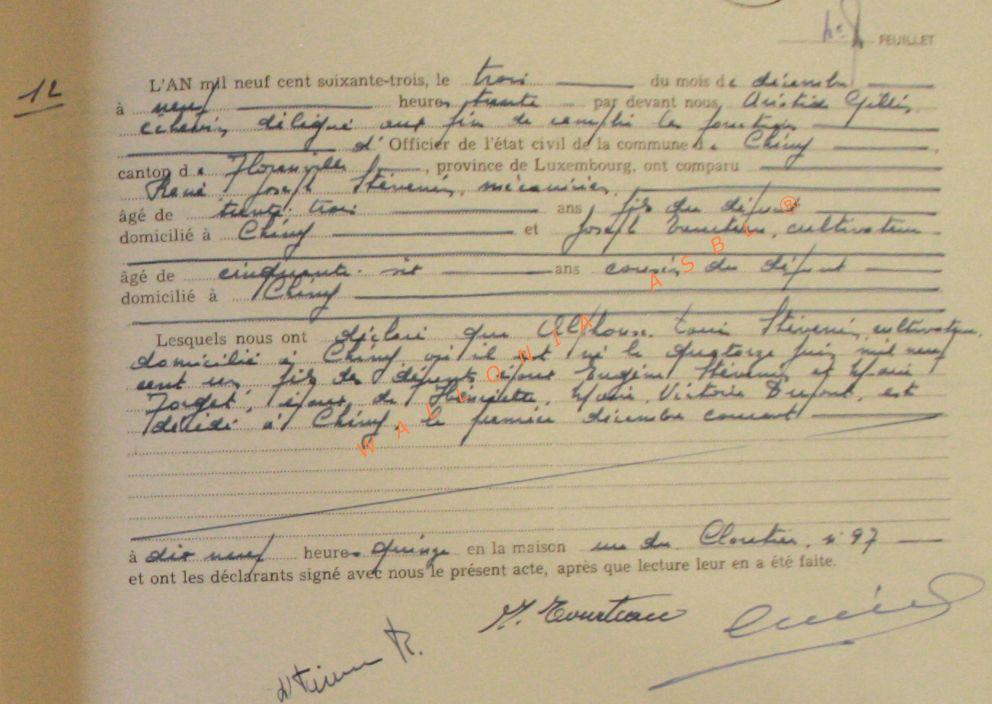 FEUILLET
12
L'AN mil neuf cent soixante-trois, le trois du mois de décembre
à neuf heures trente par devant nous, Aristide Gillis,
échevin, délégué aux fin de remplir les fonctions
d' Officier de l'état civil de la commune de Chiny,
canton de Florenville, province de Luxembourg, ont comparu
René Joseph Stévenin, mécanicien,
âgé de trente trois ans fils du défunt
domicilié à Chiny et Joseph, cultivateur
âgé de cinquante ans cousin du défunt
domicilié à Chiny
Lesquels nous ont déclaré que Alphonse Louis Stévenin, cultivateur,
domicilié à Chiny où il est né le quatorze juin mil neuf
cent un, fils des défunts époux Eugène Stévenin et Marie
Forget, époux de Henriette, Marie, Victoire Dupont, est
décédé à Chiny, le premier décembre courant
à dix neuf heures quinze en la maison rue du n° 97
et ont les déclarants signé avec nous le présent acte, après que lecture leur en a été faite.
WALLONIA ASBL ®